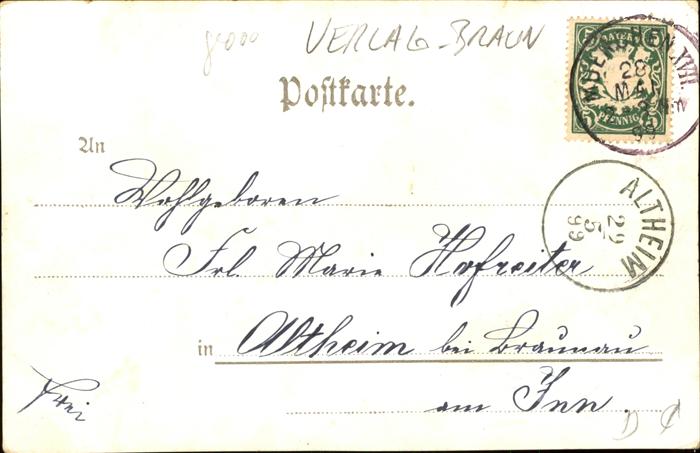 VERLAG-BRAUN
Postkarte.
BAYERN
PFENNIG
XVII.
28
MAI
99
An
Wohlgeboren
ALTHEIM
29
5
99
Frl. Marie Hofreiter
in Altheim bei Braunau
am Inn.
Frei
D ₵